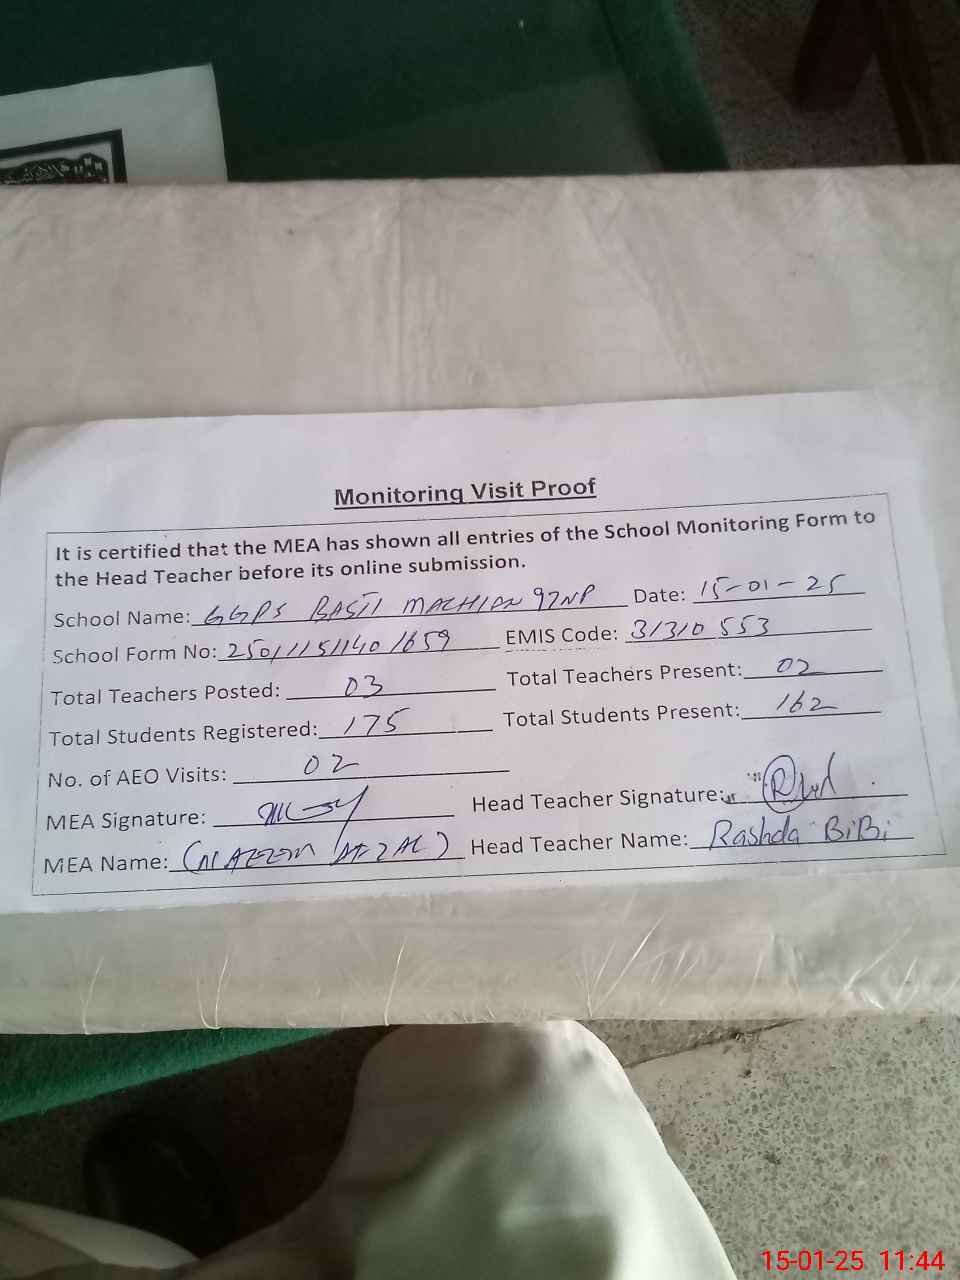 Monitoring Visit Proof
It is certified that the MEA has shown all entries of the School Monitoring Form to
the Head Teacher before its online submission.
School Name: GGPS BASTI MACHIAN 97NP Date: 15-01-25
School Form No: 25011151140 1659 EMIS Code: 31310 553
Total Teachers Posted: 03 Total Teachers Present: 02
Total Students Registered: 175 Total Students Present: 162
No. of AEO Visits: 02
MEA Signature: Head Teacher Signature:
MEA Name: (NAEEM AFZAL) Head Teacher Name: Rashda BiBi
15-01-25 11:44